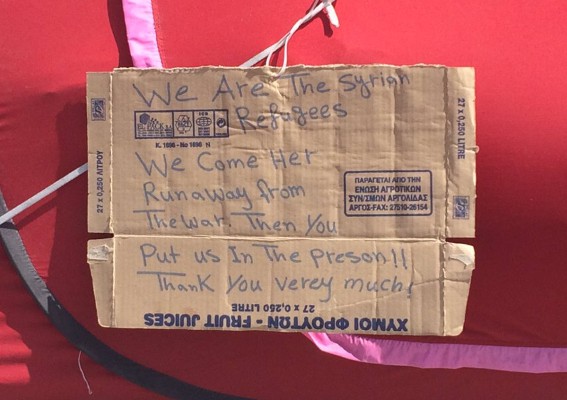 We Are The Syrian
Refugees
ISO
K. 1696 - No 1696 N
We Come Her
Runaway from
The war. Then You
Put us In The Preson!!
Thank You verey much!
27 x 0,250 ΛΙΤΡΟΥ
27 x 0,250 LITRE
ΠΑΡΑΓΕΤΑΙ ΑΠΟ ΤΗΝ
ΕΝΩΣΗ ΑΓΡΟΤΙΚΩΝ
ΣΥΝ/ΣΜΩΝ ΑΡΓΟΛΙΔΑΣ
ΑΡΓΟΣ-FAX: 27510-26154
ΧΥΜΟΙ ΦΡΟΥΤΩΝ - FRUIT JUICES
27 x 0,250 LITRE